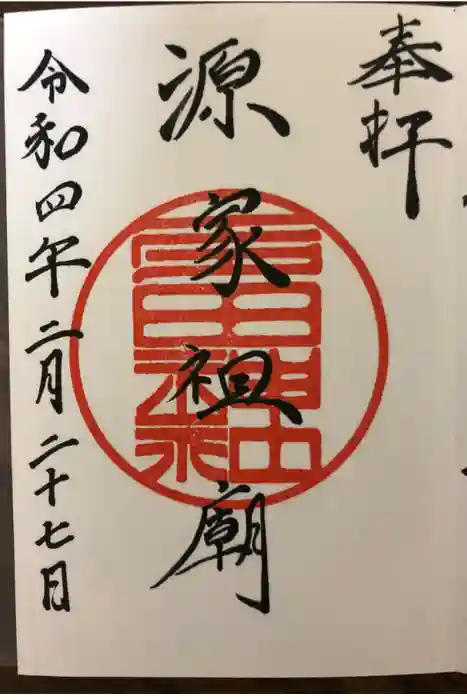 奉拝
源家祖廟
令和四年二月二十七日